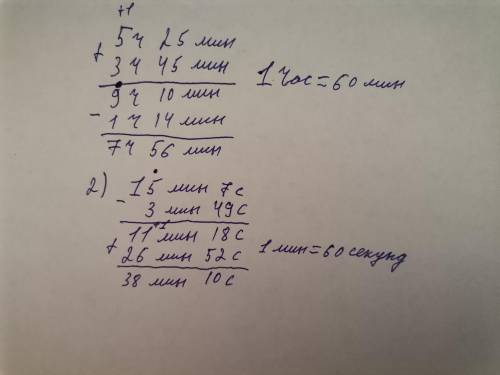 +1
5ч 25 мин
+
3ч 45 мин
1 час = 60 мин
9ч 10 мин
-
1ч 14 мин
7ч 56 мин
2) 15 мин 7с
-
3 мин 49с
+1
11 мин 18с
+
26 мин 52с
1 мин = 60 секунд
38 мин 10с